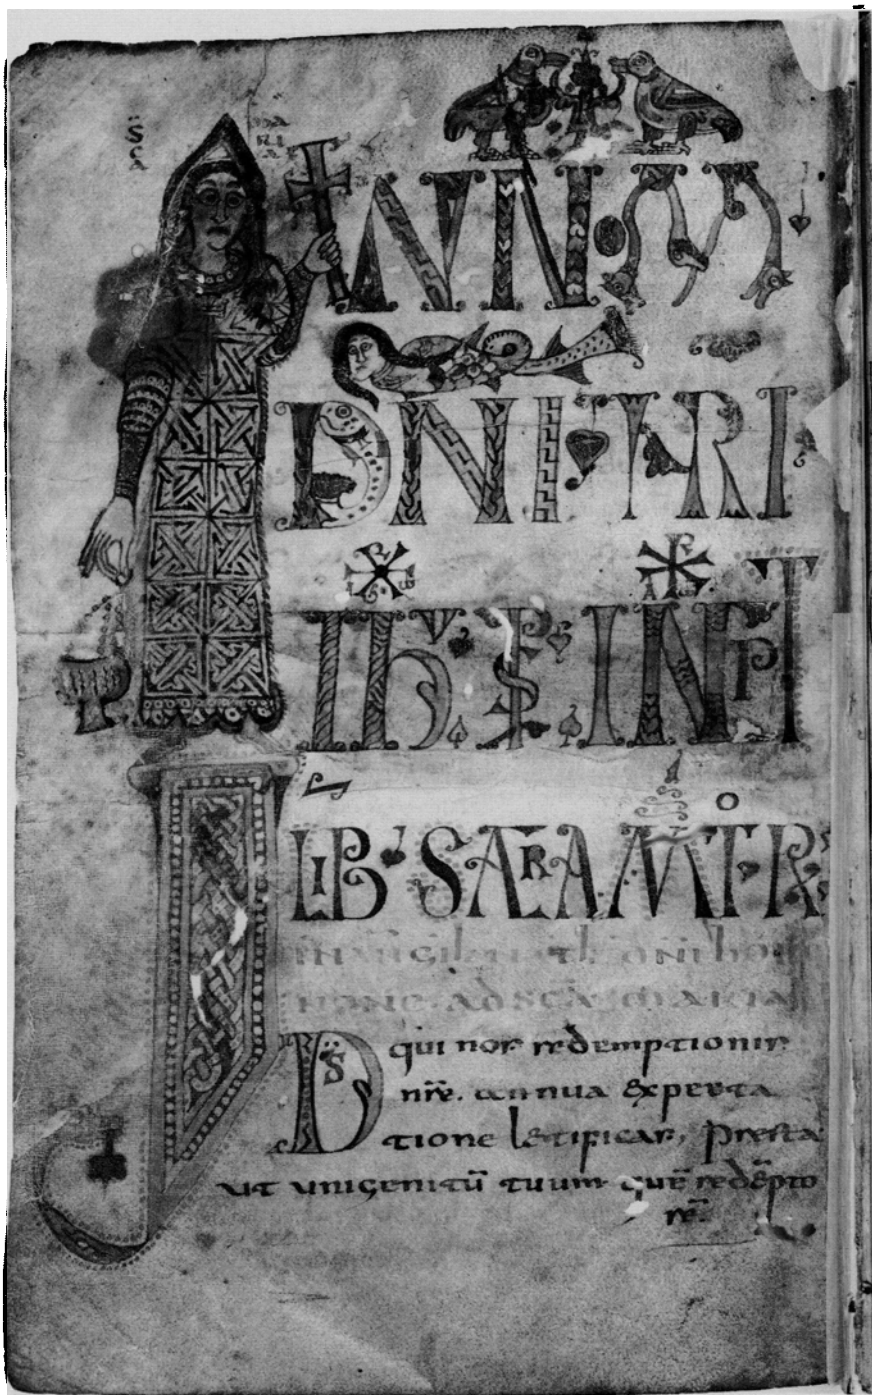 SCA MARIA
INNOM
DNI NRI
IHU XPI INCPT
LIB SACRAMTOR
nat dni ho
nona ad sca maria
Ds qui nos redemptionis
nre. annua expecta
tione letificas, presta
ut unigenitu tuum que redepto
re.